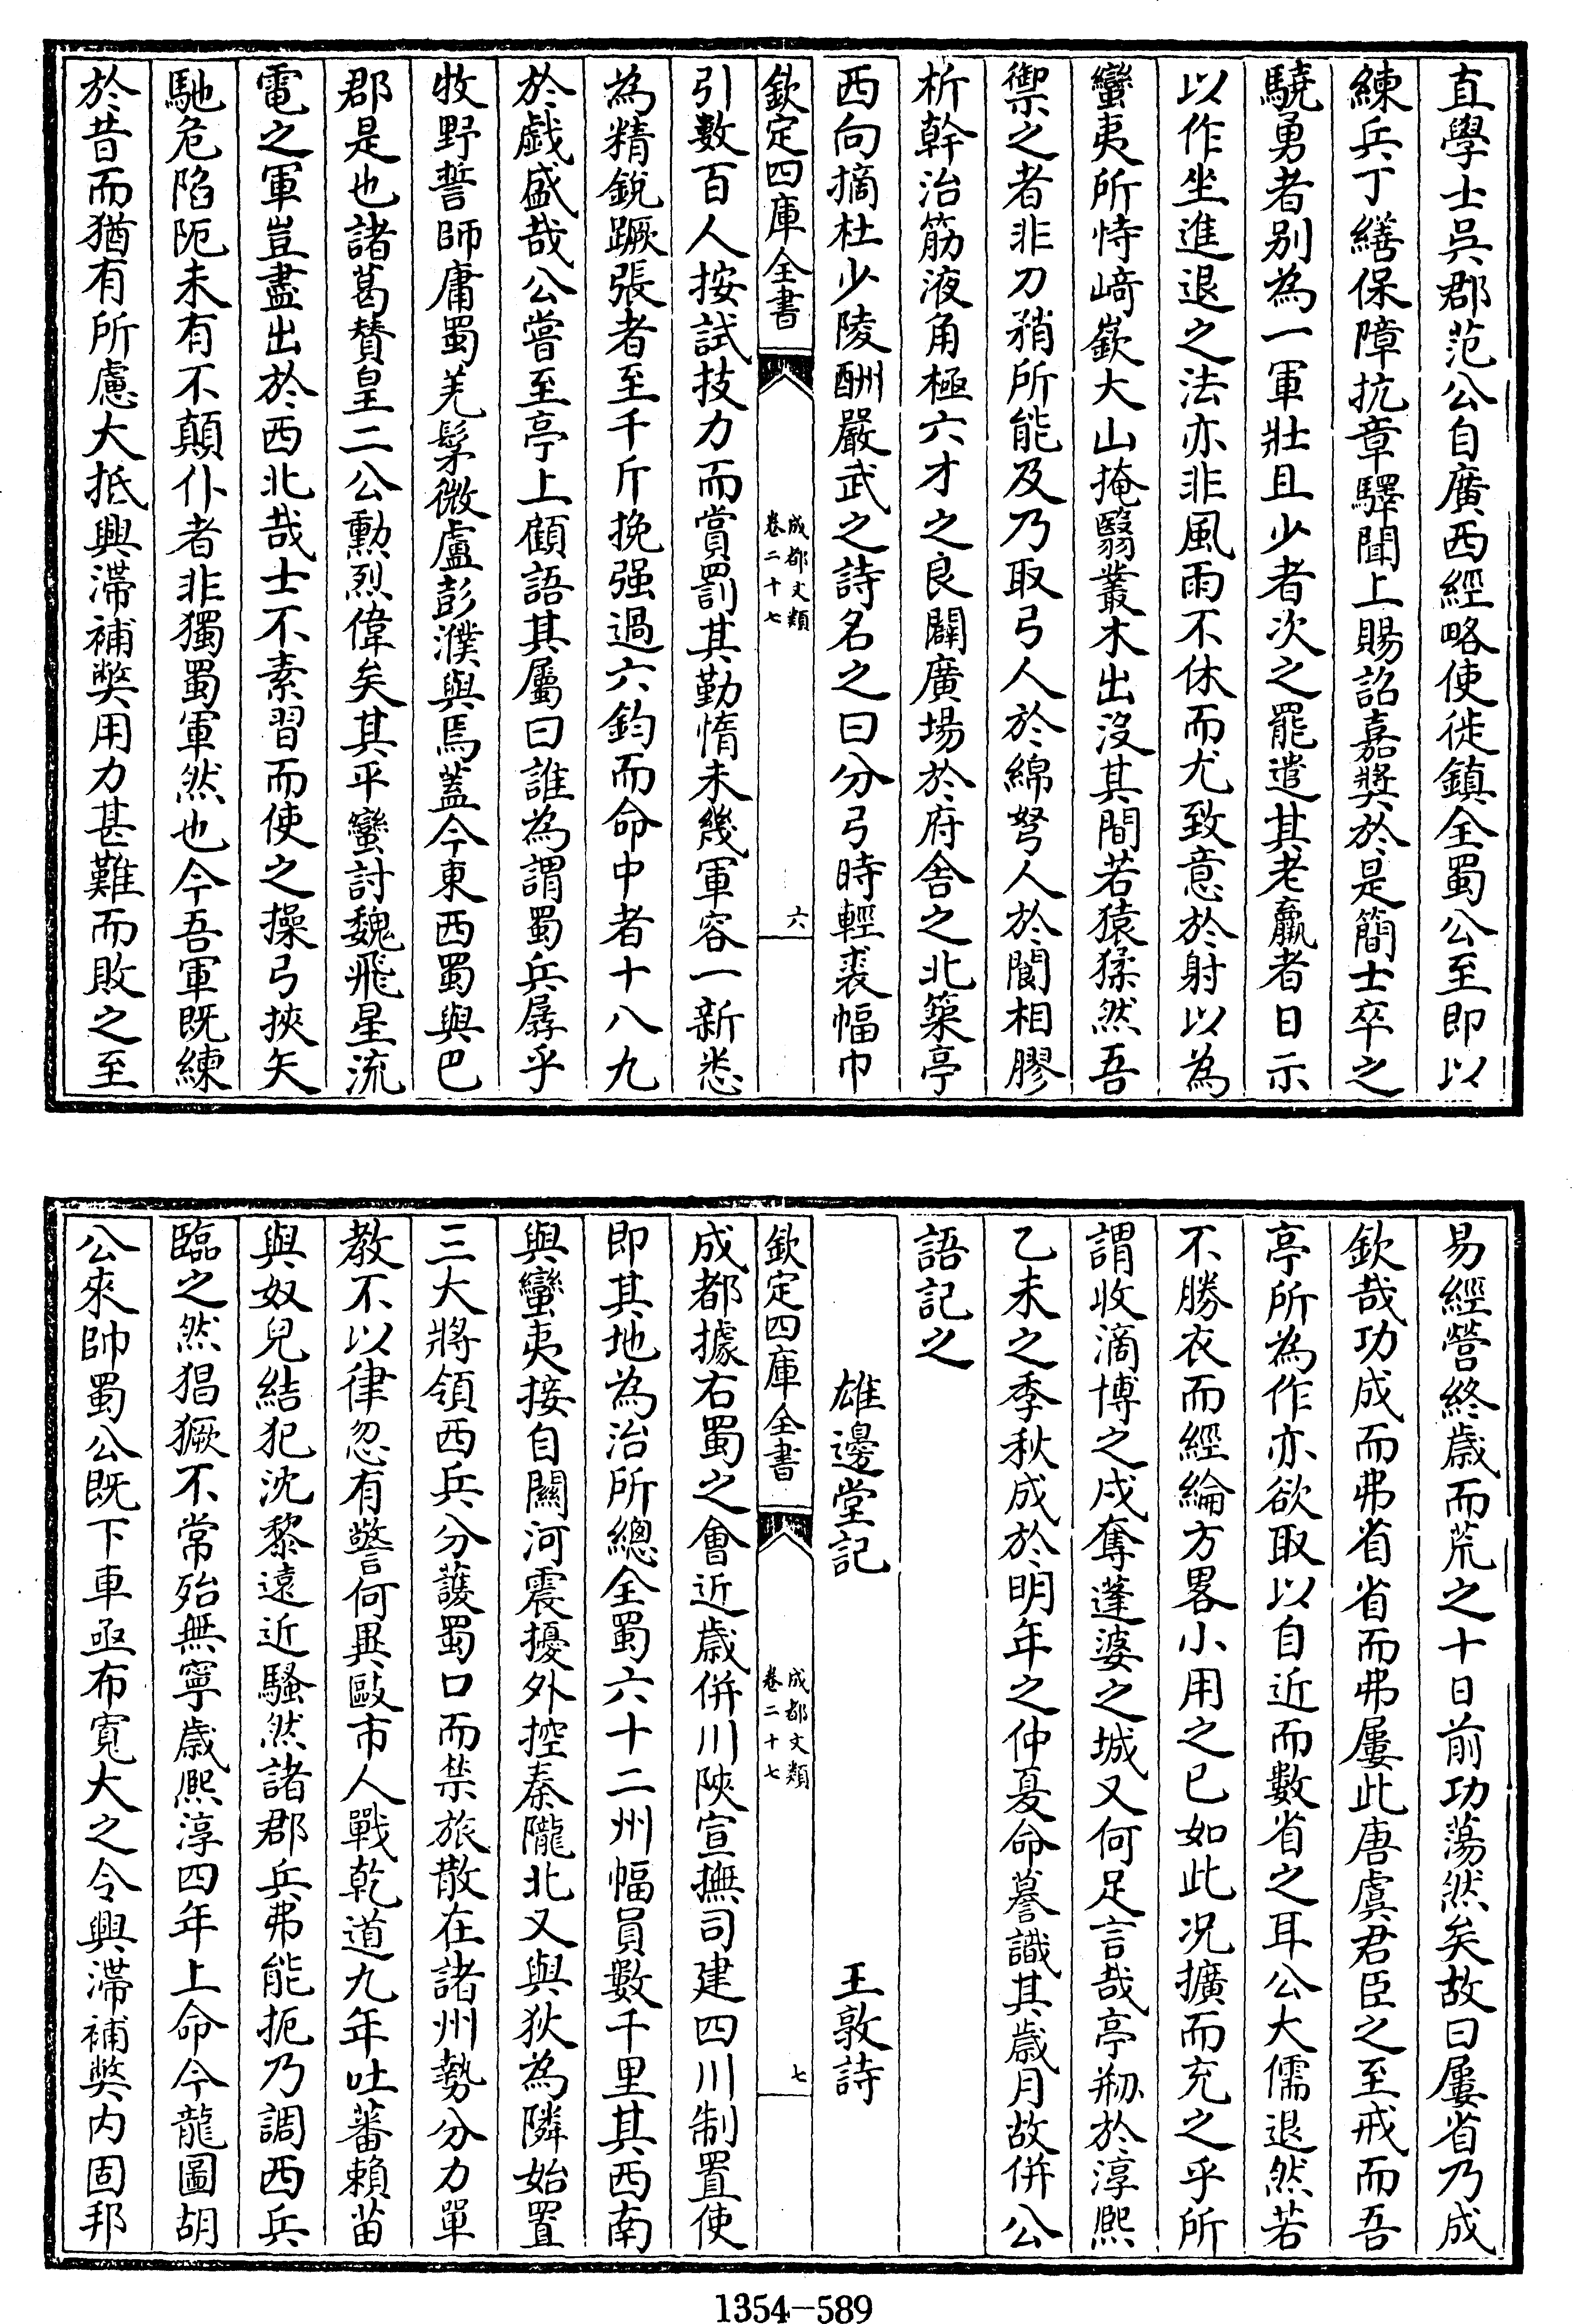 直學士吳郡范公自廣西經略使徙鎮全蜀公至即以
練兵丁繕保障抗章驛聞上賜詔嘉獎於是簡士卒之
驍勇者别為一軍壯且少者次之罷遣其老羸者日示
以作坐進退之法亦非風雨不休而尤致意於射以為
蠻夷所恃﨑嶔大山掩翳叢木出没其間若猿猱然吾
禦之者非刀矟所能及乃取弓人於綿弩人於閬相膠
析幹治筋液角極六才之良闢廣場於府舍之北築亭
西向摘杜少陵酬嚴武之詩名之曰分弓時輕裘幅巾
欽定四庫全書
成都文類
卷二十七
六
引數百人按試技力而賞罰其勤惰未幾軍容一新悉
為精銳蹶張者至千斤挽强過六鈞而命中者十八九
於戲盛哉公嘗至亭上顧語其屬曰誰為謂蜀兵孱乎
牧野誓師庸蜀羌髳微盧彭濮與焉葢今東西蜀與巴
郡是也諸葛贊皇二公勳烈偉矣其平蠻討魏飛星流
電之軍豈盡出於西北哉士不素習而使之操弓挾矢
馳危陷阨未有不顛仆者非獨蜀軍然也今吾軍既練
於昔而猶有所慮大抵興滯補獘用力甚難而敗之至
易經營終歲而荒之十日前功蕩然矣故曰屢省乃成
欽哉功成而弗省省而弗屢此唐虞君臣之至戒而吾
亭所為作亦欲取以自近而數省之耳公大儒退然若
不勝衣而經綸方畧小用之已如此况擴而充之乎所
謂收滴博之戍奪蓬婆之城又何足言哉亭剏於淳熙
乙未之季秋成於明年之仲夏命謩識其歲月故併公
語記之
雄邊堂記 王敦詩
欽定四庫全書
成都文類
卷二十七
七
成都據右蜀之會近歲併川陜宣撫司建四川制置使
即其地為治所總全蜀六十二州幅員數千里其西南
與蠻夷接自關河震擾外控秦隴北又與狄為隣始置
三大將領西兵分䕶蜀口而禁旅散在諸州勢分力單
教不以律忽有警何異毆市人戰乾道九年吐蕃賴苗
與奴兒結犯沈黎遠近騷然諸郡兵弗能扼乃調西兵
臨之然猖獗不常殆無寧歲熙淳四年上命今龍圖胡
公來帥蜀公既下車亟布寬大之令興滯補獘内固邦
1354—589